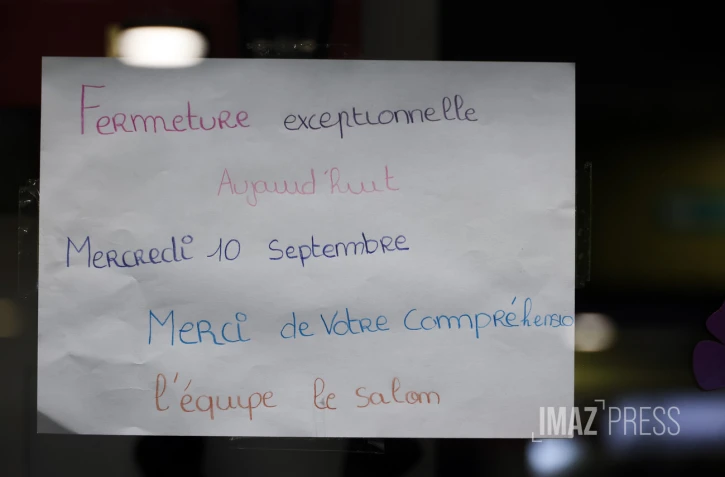 Fermeture exceptionnelle
Aujourd'huit
Mercredi 10 Septembre
Merci de Votre Compréhensio
l'équipe le salon
IMAZ PRESS